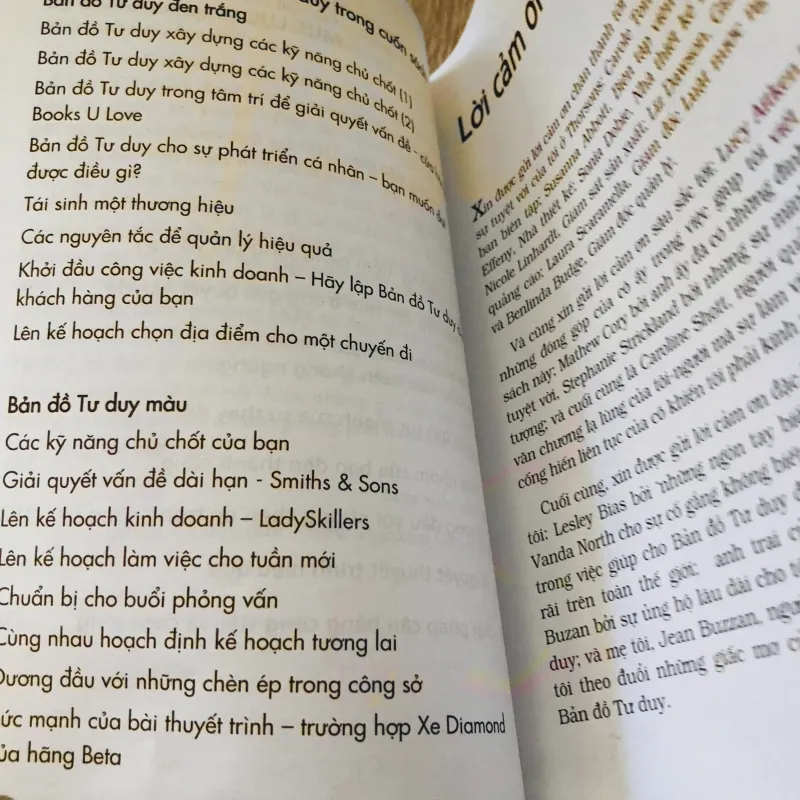 duy trong cuốn
Bản đồ Tư duy đen trắng
Bản đồ Tư duy xây dựng các kỹ năng chủ chốt (1)
Bản đồ Tư duy xây dựng các kỹ năng chủ chốt (2)
Bản đồ Tư duy trong tâm trí để giải quyết vấn đề -
Books U Love
Bản đồ Tư duy cho sự phát triển cá nhân – bạn muốn
được điều gì?
Tái sinh một thương hiệu
Các nguyên tắc để quản lý hiệu quả
Khởi đầu công việc kinh doanh – Hãy lập Bản đồ Tư duy
khách hàng của bạn
Lên kế hoạch chọn địa điểm cho một chuyến đi
Bản đồ Tư duy màu
Các kỹ năng chủ chốt của bạn
Giải quyết vấn đề dài hạn - Smiths & Sons
Lên kế hoạch kinh doanh – LadySkillers
Lên kế hoạch làm việc cho tuần mới
Chuẩn bị cho buổi phỏng vấn
Cùng nhau hoạch định kế hoạch tương lai
Đương đầu với những chèn ép trong công sở
ức mạnh của bài thuyết trình – trường hợp Xe Diamond
ủa hãng Beta
Lời cảm ơn
Xin được gửi lời cảm ơn chân thành tới
sự tuyệt vời của tôi ở Thorsons: Carole
ban biên tập; Susanna Abbott, Biên tập viên
Effeny, Nhà thiết kế; Sonia Dobie, Nhà thiết kế
Nicole Linhardt, Giám sát sản xuất; Liz Dawson,
quảng cáo; Laura Scaramella, Giám đốc
và Benlinda Budge, Giám đốc quản lý.
Và cũng xin gửi lời cảm ơn sâu sắc tới: Lucy Aitken
những đóng góp của cô ấy trong việc giúp tôi viết
sách này; Mathew Cory bởi anh ấy đã có những
tuyệt vời, Stephanie Strickland bởi những sự minh
tượng; và cuối cùng là Caroline Shott, người
văn chương lạ lùng của tôi người mà sự làm
cống hiến liên tục của cô khiến tôi phải kinh
Cuối cùng, xin được gửi lời cảm ơn đặc
tôi: Lesley Bias bởi "những ngón tay
Vanda North cho sự cố gắng không
trong việc giúp cho Bản đồ Tư duy
rãi trên toàn thế giới; anh trai
Buzan bởi sự ủng hộ lâu dài cho
duy; và mẹ tôi, Jean Buzzan,
tôi theo đuổi những giấc mơ
Bản đồ Tư duy.